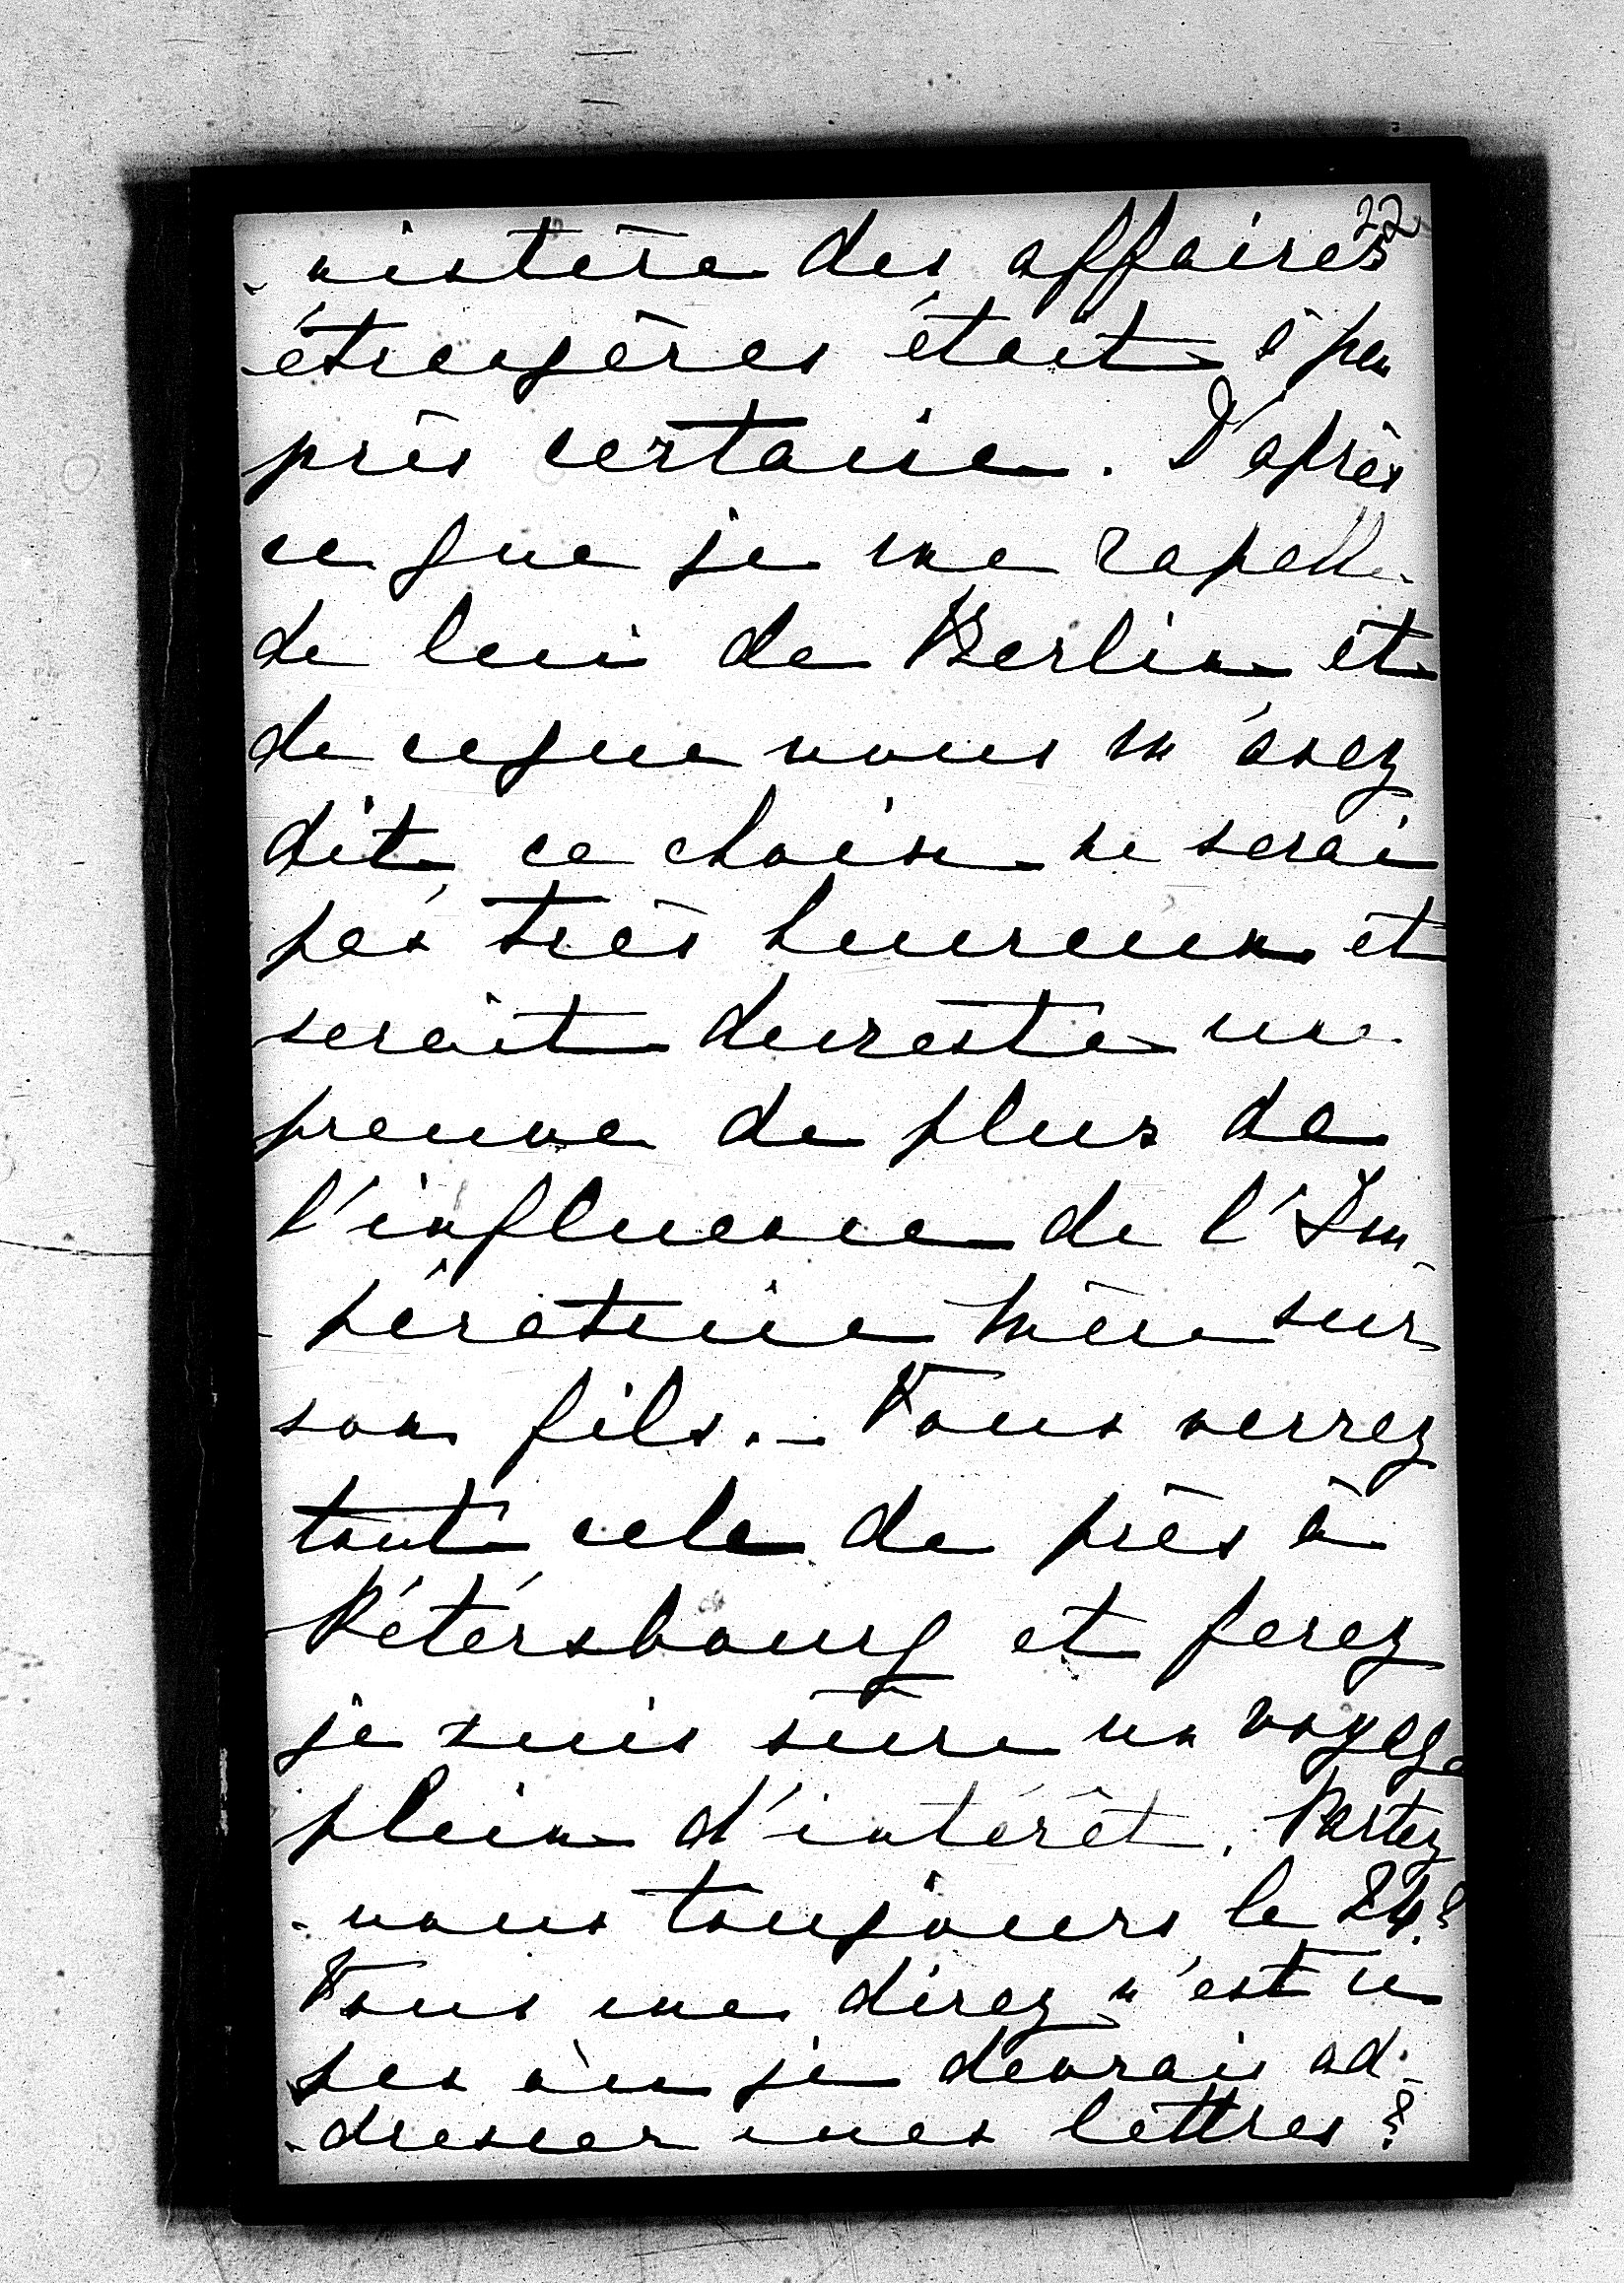 22
-nistère des affaires
étrangères était à peu
près certaine. D'après
ce que je me rapelle
de lui de Berlin et
de ceque vous m'avez
dit ce choix ne serai
pas très heureux et
serait dureste une
preuve de plus de
l'influence de l'Im-
-pératrice mère sur
son fils. – Vous verrez
tout cela de près à
Pétérsbourg et ferez
je suis sûre un voyage
plein d'intérêt. Partez
-vous toujours le 24?
Vous me direz n'est ce
pas où je devrais ad-
-dresser mes lettres?